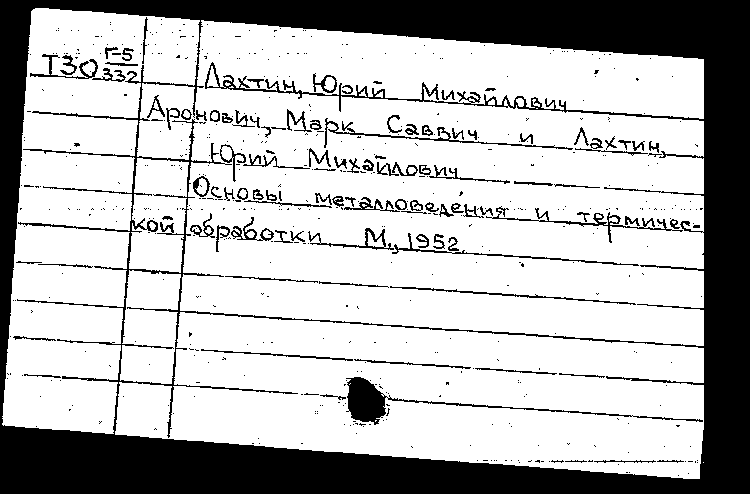 Т30 Г-5/332
Лахтин, Юрий Михайлович
Аронович, Марк Саввич и Лахтин,
Юрий Михайлович
Основы металловедения и термичес-
кой обработки М., 1952